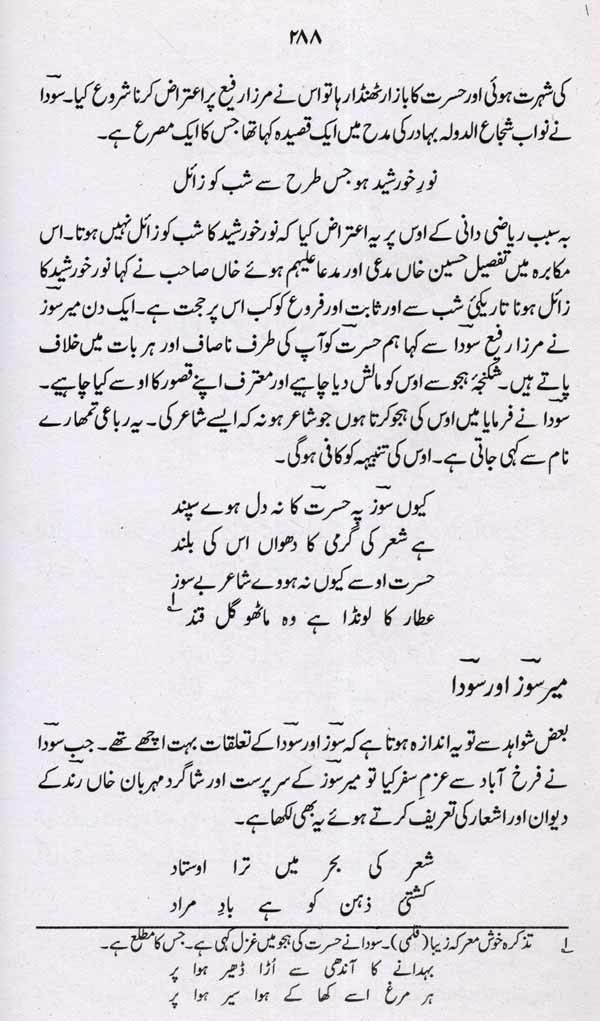 ۲۸۸
کی شہرت ہوئی اور حسرت کا بازار ٹھنڈا رہا تو اس نے مرزا رفیع پر اعتراض کرنا شروع کیا۔ سودا
نے نواب شجاع الدولہ بہادر کی مدح میں ایک قصیدہ کہا تھا جس کا ایک مصرع ہے۔
نورِ خورشید ہو جس طرح سے شب کو زائل
بہ سبب ریاضی دانی کے اوس پر یہ اعتراض کیا کہ نور خورشید کا شب کو زائل نہیں ہوتا۔ اس
مکابرہ میں تفصیل حسین خاں مدعی اور مدعا علیہم ہوئے خاں صاحب نے کہا نور خورشید کا
زائل ہونا تاریکیٔ شب سے اور ثابت اور فروع کو کب اس پر حجت ہے۔ ایک دن میر سوز
نے مرزا رفیع سودا سے کہا ہم حسرت کو آپ کی طرف ناصاف اور ہر بات میں خلاف
پاتے ہیں۔ شکنجۂ ہجو سے اوس کو مالش دیا چاہیے اور معترف اپنے قصور کا اوسے کیا چاہیے۔
سودا نے فرمایا میں اوس کی ہجو کرتا ہوں جو شاعر ہو نہ کہ ایسے شاعر کی۔ یہ رباعی تمھارے
نام سے کہی جاتی ہے۔ اوس کی تنبیہہ کو کافی ہوگی۔
کیوں سوز پہ حسرت کا نہ دل ہوے سپند
ہے شعر کی گرمی کا دھواں اس کی بلند
حسرت اوسے کیوں نہ ہووے شاعر بے سوز
عطار کا لونڈا ہے وہ ماٹھو گل قند ۱؎
میر سوز اور سودا
بعض شواہد سے تو یہ اندازہ ہوتا ہے کہ سوز اور سودا کے تعلقات بہت اچھے تھے۔ جب سودا
نے فرخ آباد سے عزمِ سفر کیا تو میر سوز کے سرپرست اور شاگرد مہربان خاں رند کے
دیوان اور اشعار کی تعریف کرتے ہوئے یہ بھی لکھا ہے۔
شعر کی بحر میں ترا اوستاد
کشتیٔ ذہن کو ہے بادِ مراد
۱؎ تذکرہ خوش معرکہ زیبا (قلمی)۔ سودا نے حسرت کی ہجو میں غزل کہی ہے۔ جس کا مطلع ہے۔
بہدانے کا آندھی سے اُڑا ڈھیر ہوا پر
ہر مرغ اسے کھا کے ہوا سیر ہوا پر